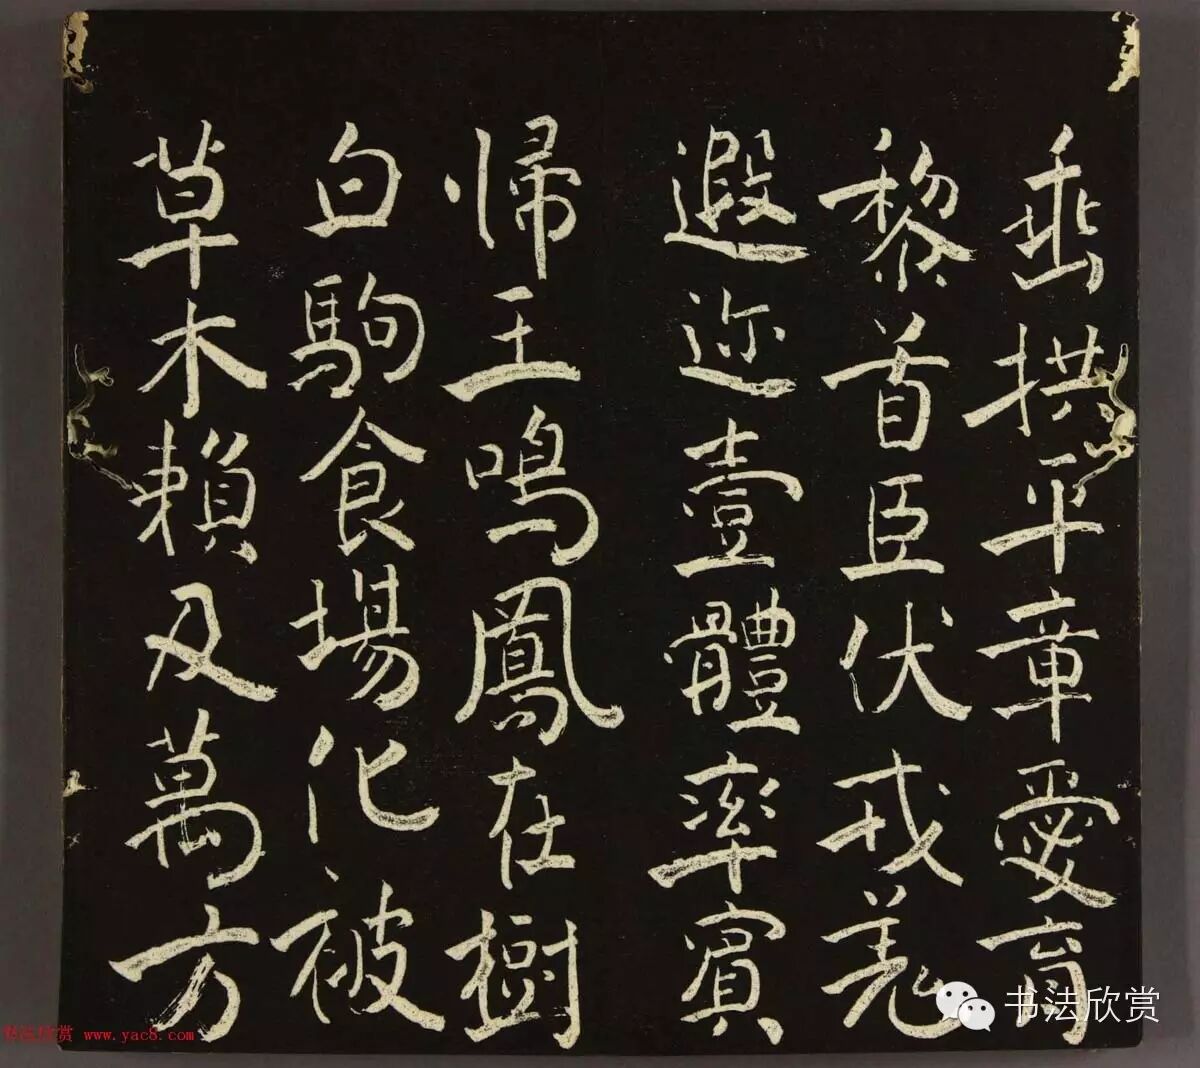 垂拱平章愛育
黎首臣伏戎羌
遐迩壹體率賓
歸王鳴鳳在樹
白駒食場化被
草木賴及萬方
书法欣赏
书法欣赏 www.yac8.com